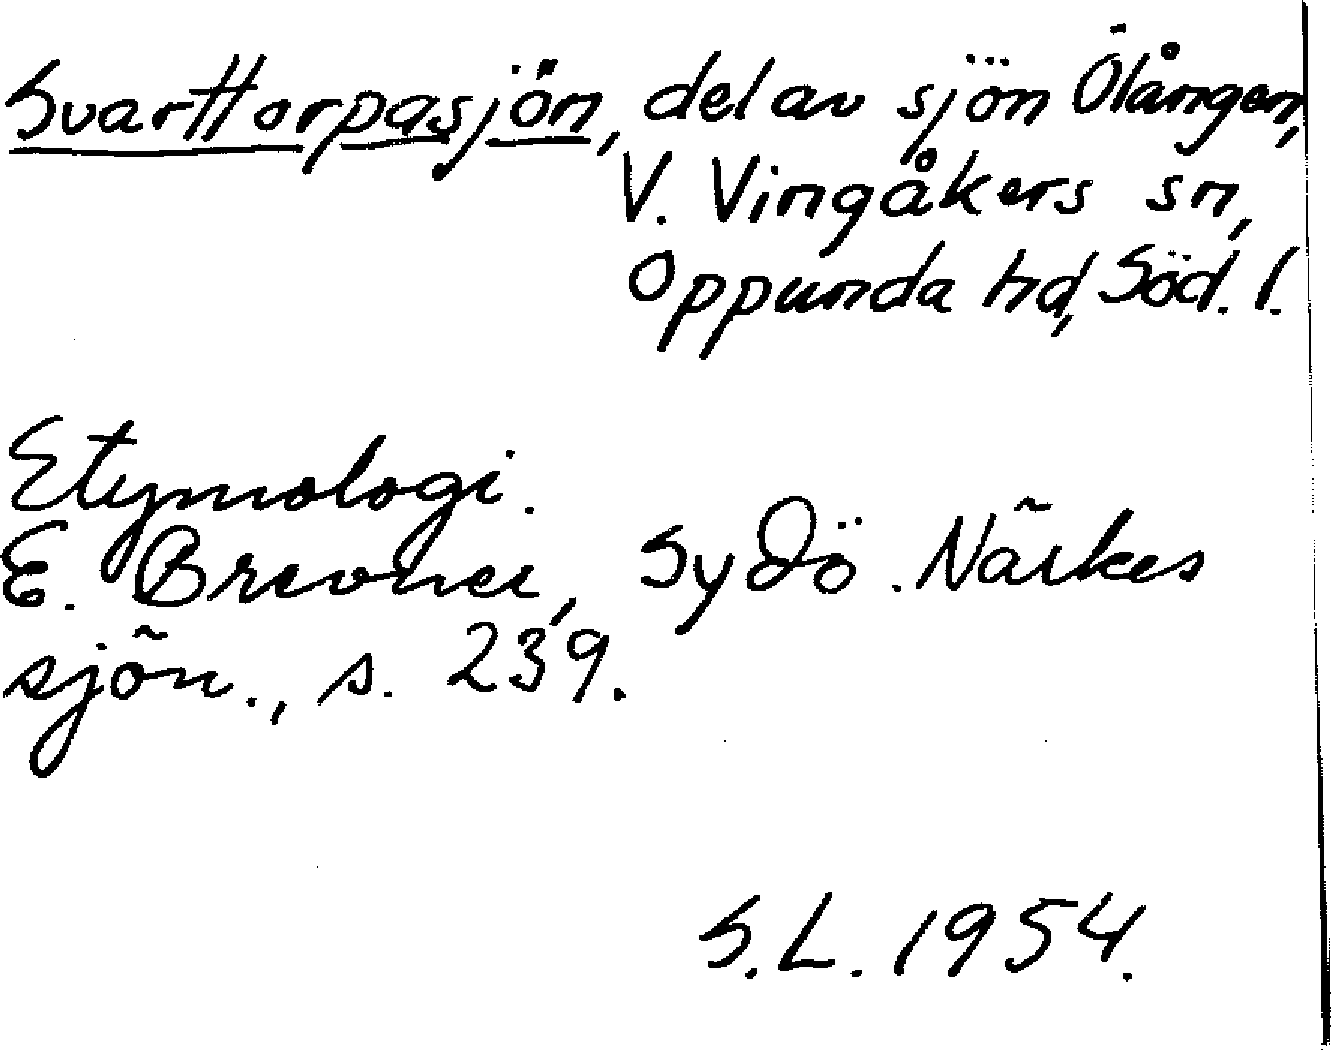 Svarttorpasjön, del av sjön Ölången,
V. Vingåkers sn,
Oppunda hd, Söd. l.
Etymologi.
E. Brevner, Sydö. Närkes
sjön., s. 239.
S.L. 1954.